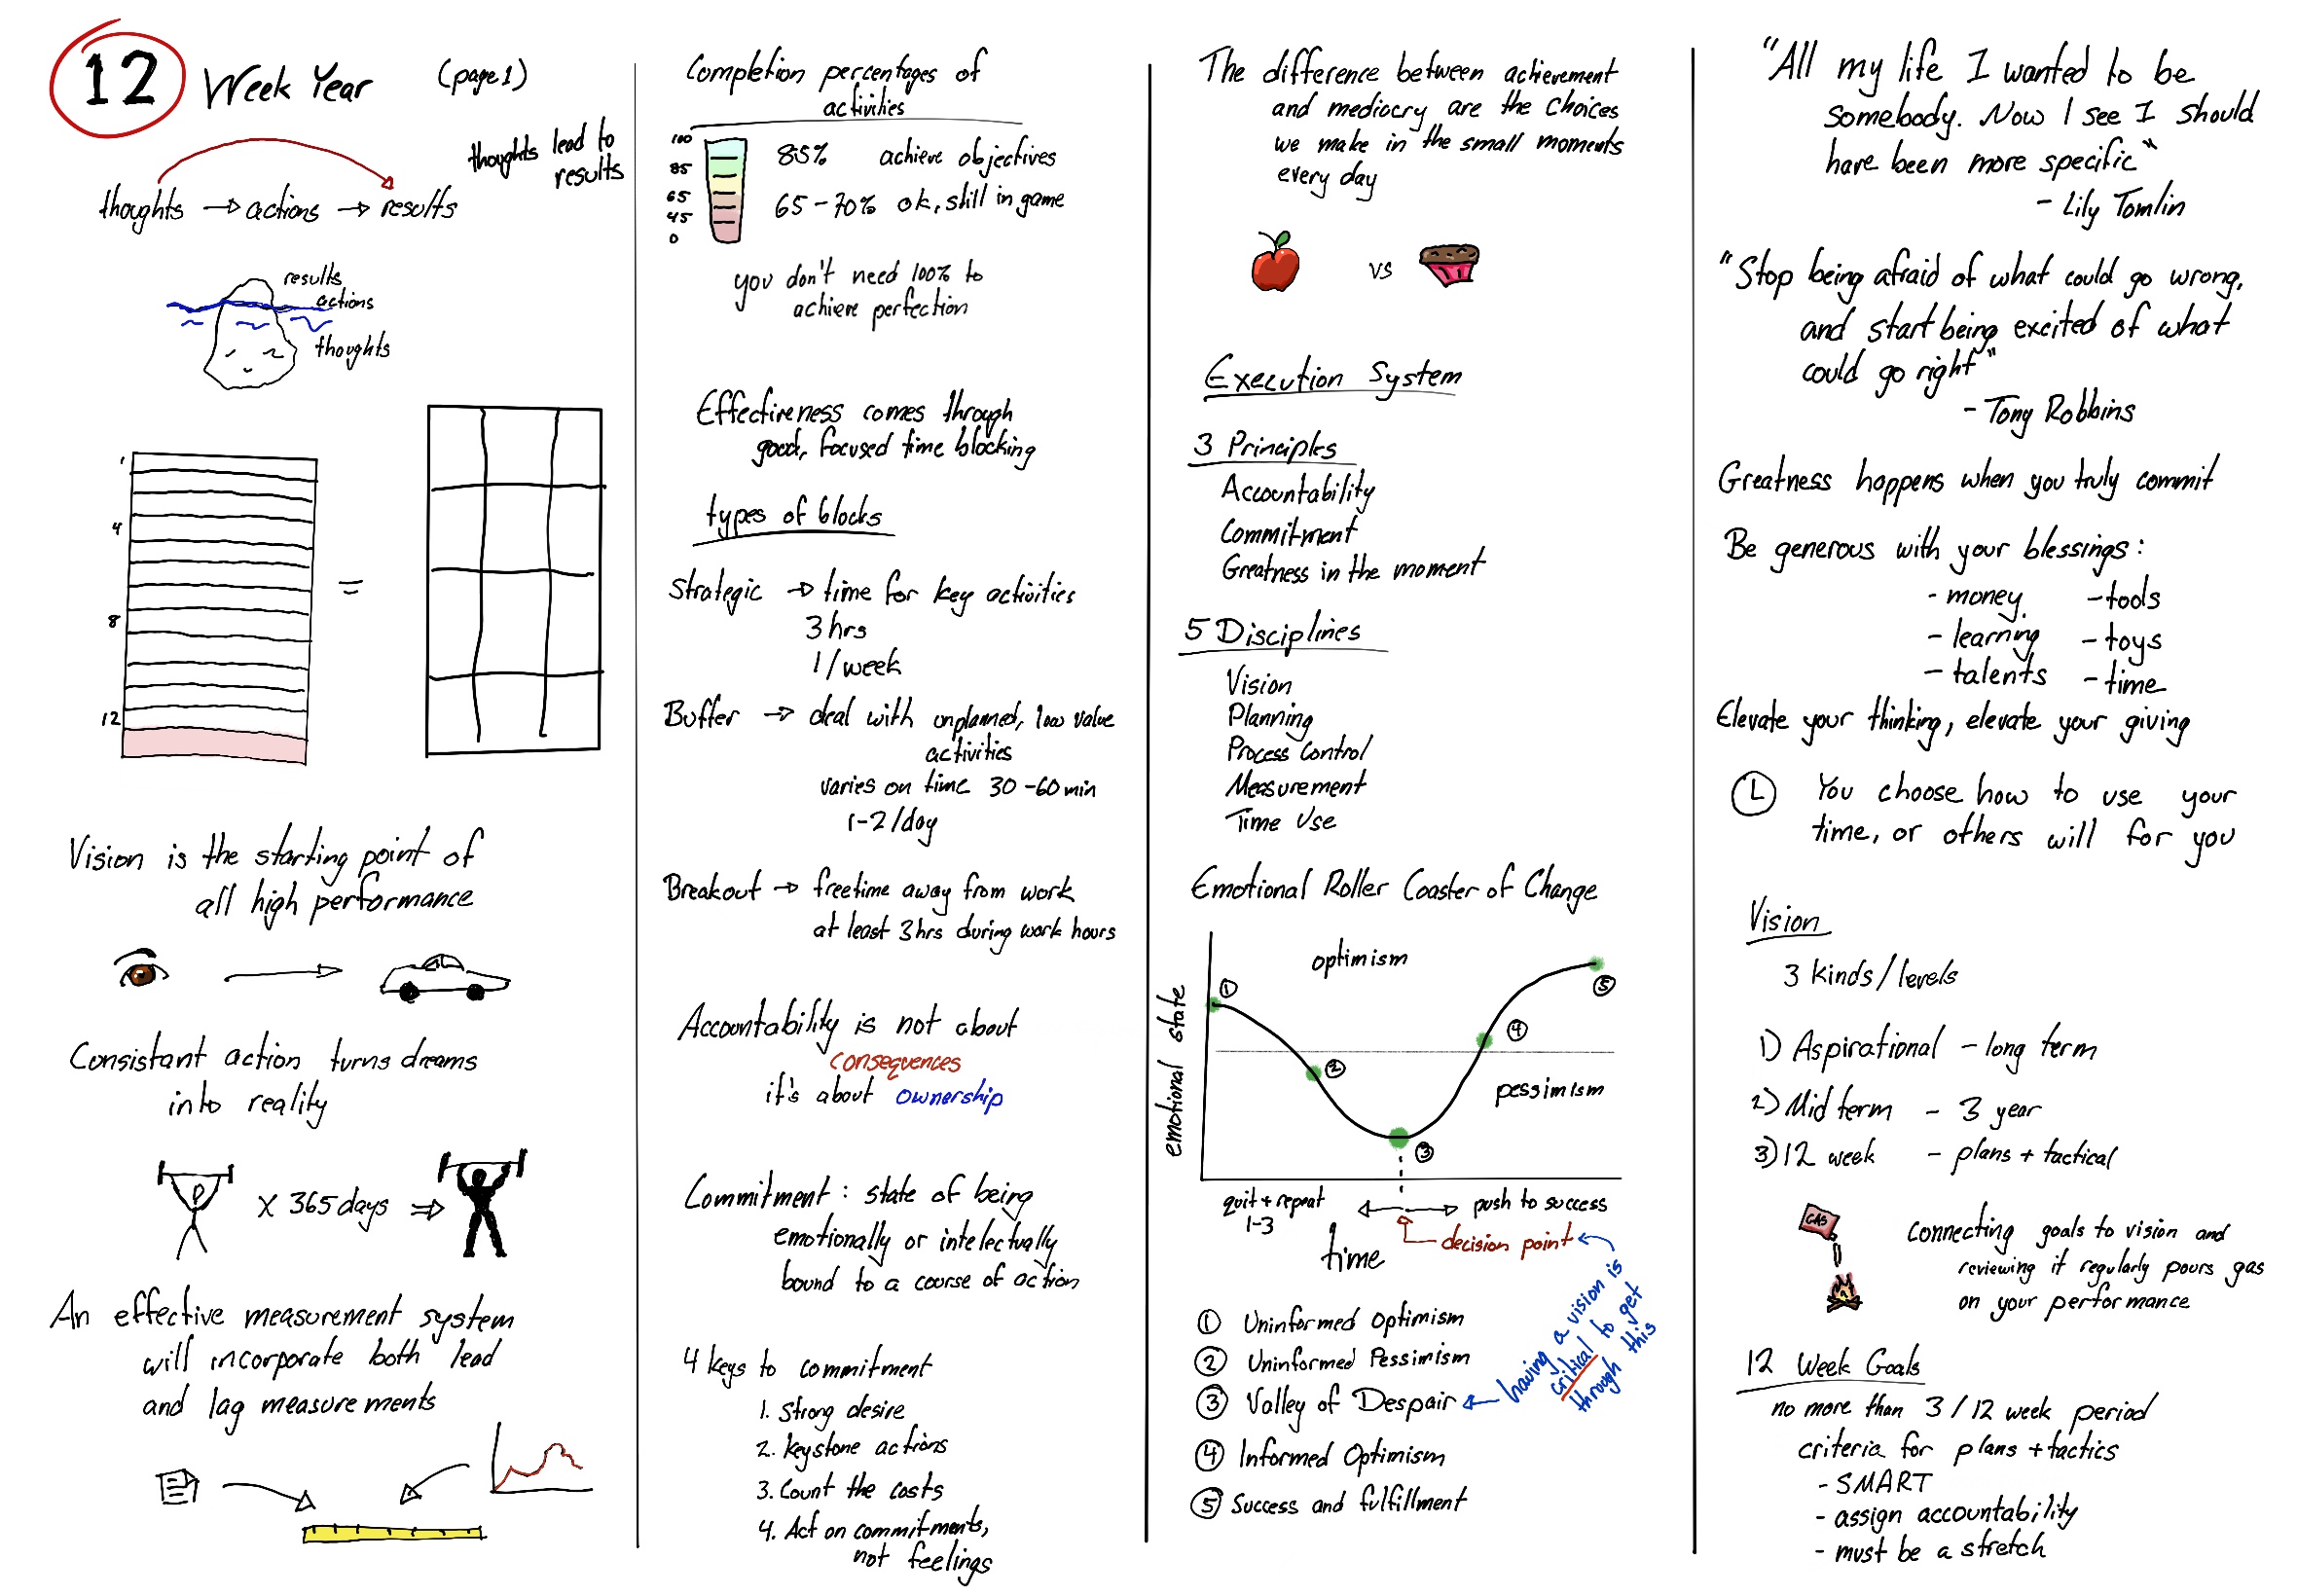 12 Week Year (page 1)
thoughts lead to
results
thoughts → actions → results
results
actions
thoughts
1
4
8
12
=
Vision is the starting point of
all high performance
Consistant action turns dreams
into reality
x 365 days ⇒
An effective measurement system
will incorporate both lead
and lag measurements
Completion percentages of
activities
100
85
65
45
0
85% achieve objectives
65-70% ok, still in game
you don't need 100% to
achieve perfection
Effectiveness comes through
good, focused time blocking
types of blocks
Strategic → time for key activities
3 hrs
1/week
Buffer → deal with unplanned, low value
activities
varies on time 30-60 min
1-2/day
Breakout → freetime away from work
at least 3hrs during work hours
Accountability is not about
consequences
it's about ownership
Commitment: state of being
emotionally or intelectually
bound to a course of action
4 keys to commitment
1. Strong desire
2. keystone actions
3. Count the costs
4. Act on commitments,
not feelings
The difference between achievement
and mediocry are the choices
we make in the small moments
every day
vs
Execution System
3 Principles
Accountability
Commitment
Greatness in the moment
5 Disciplines
Vision
Planning
Process Control
Measurement
Time Use
Emotional Roller Coaster of Change
emotional state
optimism
pessimism
①
②
③
④
⑤
quit + repeat
1-3
push to success
decision point
time
① Uninformed Optimism
② Uninformed Pessimism
③ Valley of Despair
④ Informed Optimism
⑤ Success and fulfillment
having a vision is
critical to get
through this
"All my life I wanted to be
somebody. Now I see I should
have been more specific"
- Lily Tomlin
"Stop being afraid of what could go wrong,
and start being excited of what
could go right"
- Tony Robbins
Greatness happens when you truly commit
Be generous with your blessings:
- money - tools
- learning - toys
- talents - time
Elevate your thinking, elevate your giving
You choose how to use your
time, or others will for you
Vision
3 kinds/levels
1) Aspirational - long term
2) Mid term - 3 year
3) 12 week - plans + tactical
GAS
Connecting goals to vision and
reviewing it regularly pours gas
on your performance
12 Week Goals
no more than 3/12 week period
criteria for plans + tactics
- SMART
- assign accountability
- must be a stretch